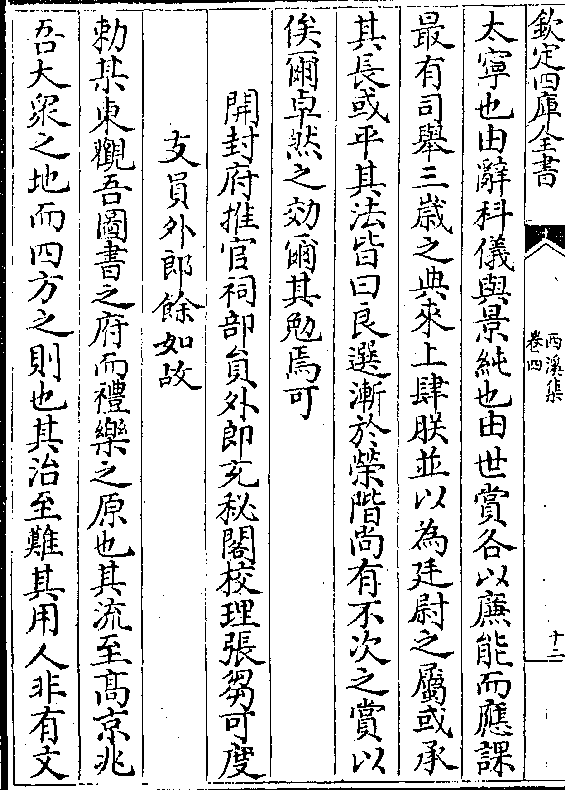 欽定四庫全書
西溪集
卷四
十二
太寧也由辭科儀與景純也由世賞各以廉能而應課
最有司舉三歲之典來上肆朕並以為廷尉之屬或承
其長或平其法皆曰良選漸於榮階尚有不次之賞以
俟爾卓然之効爾其勉焉可
開封府推官祠部員外郎充秘閣校理張芻可度
支員外郎餘如故
勅某東觀吾圖書之府而禮樂之原也其流至髙京兆
吾大衆之地而四方之則也其治至難其用人非有文